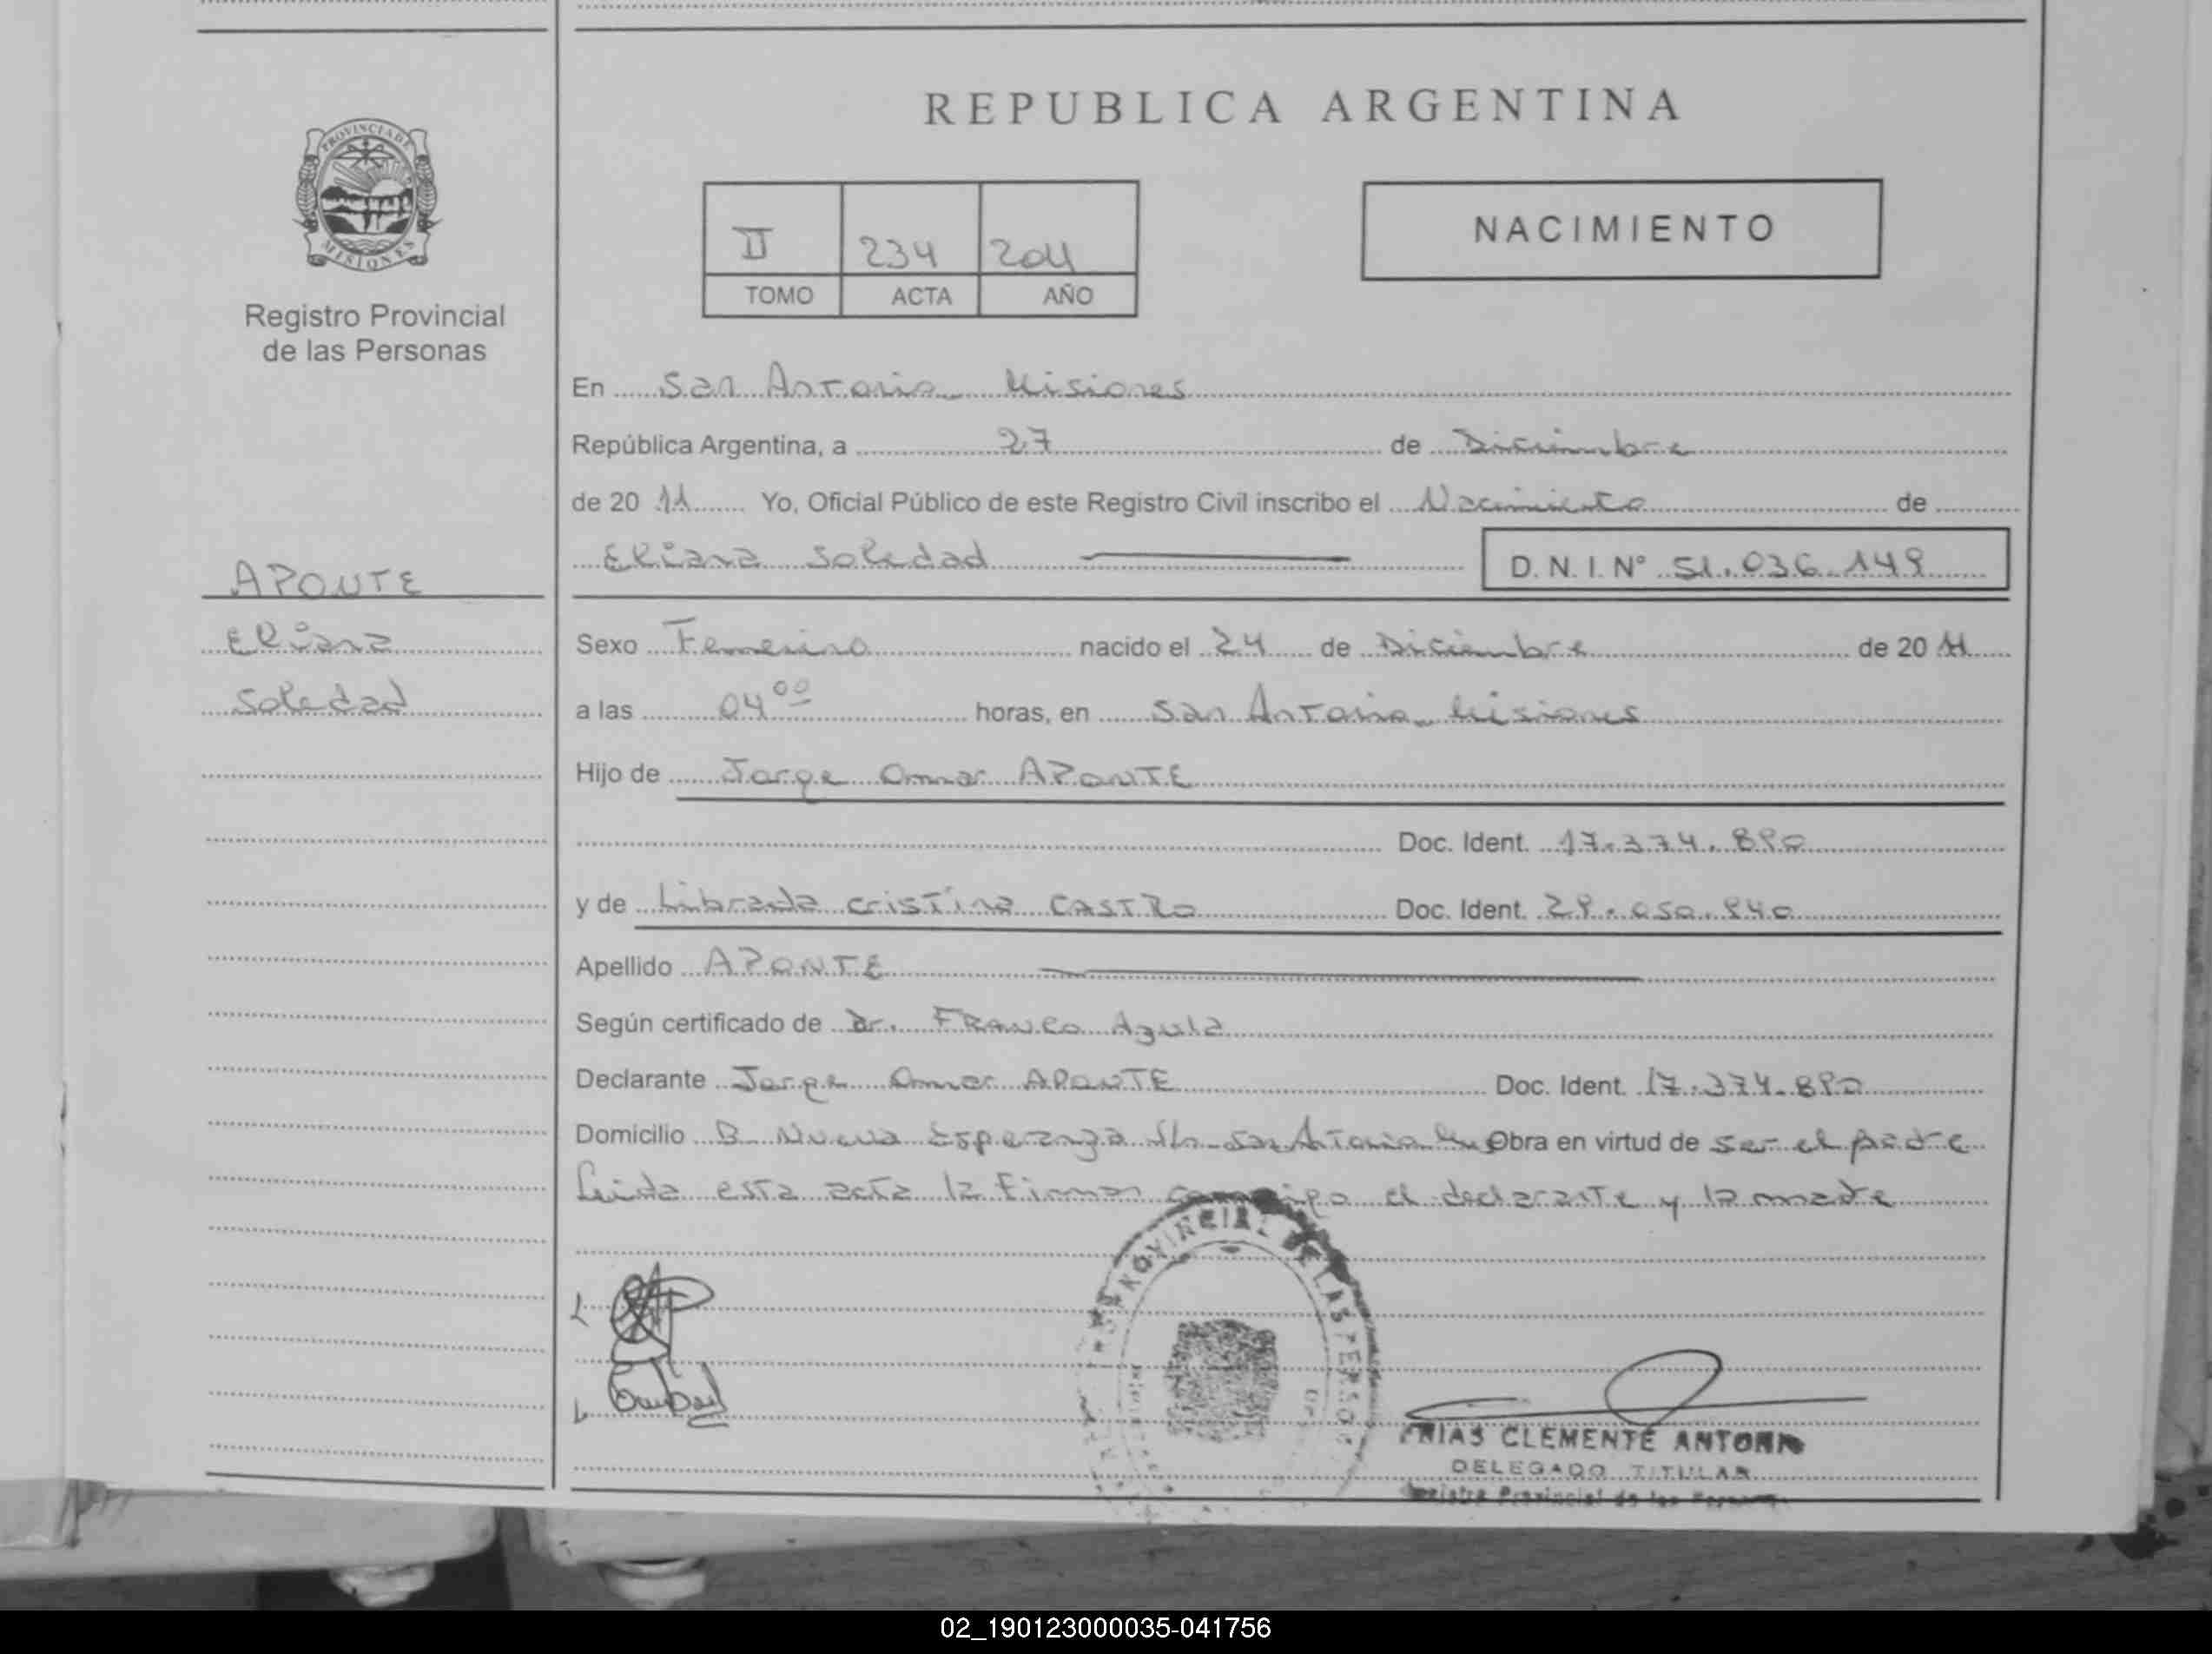 REPUBLICA ARGENTINA
PROVINCIA DE MISIONES
Registro Provincial
de las Personas
II 234 2011
TOMO ACTA AÑO
NACIMIENTO
En San Antonio Misiones
República Argentina, a 27 de Diciembre
de 20 11 Yo, Oficial Público de este Registro Civil inscribo el Nacimiento de
Eliana Soledad D. N. I. N° 51.036.149
APONTE
Eliana
Soledad
Sexo Femenino nacido el 24 de Diciembre de 20 11
a las 04 00 horas, en San Antonio Misiones
Hijo de Jorge Omar APONTE
Doc. Ident. 17.374.890
y de Librada Cristina CASTRO Doc. Ident. 29.050.940
Apellido APONTE
Según certificado de Dr. FRANCO
Declarante Jorge Omar APONTE Doc. Ident. 17.374.890
Domicilio B Nueva Esperanza San Antonio Obra en virtud de ser el padre
Leida esta acta la Firman conmigo el declarante y la madre
PROVINCIAL DE LAS PERSO
FRIAS CLEMENTE ANTONIO
DELEGADO TITULAR
Registro Provincial de las Personas
02_190123000035-041756